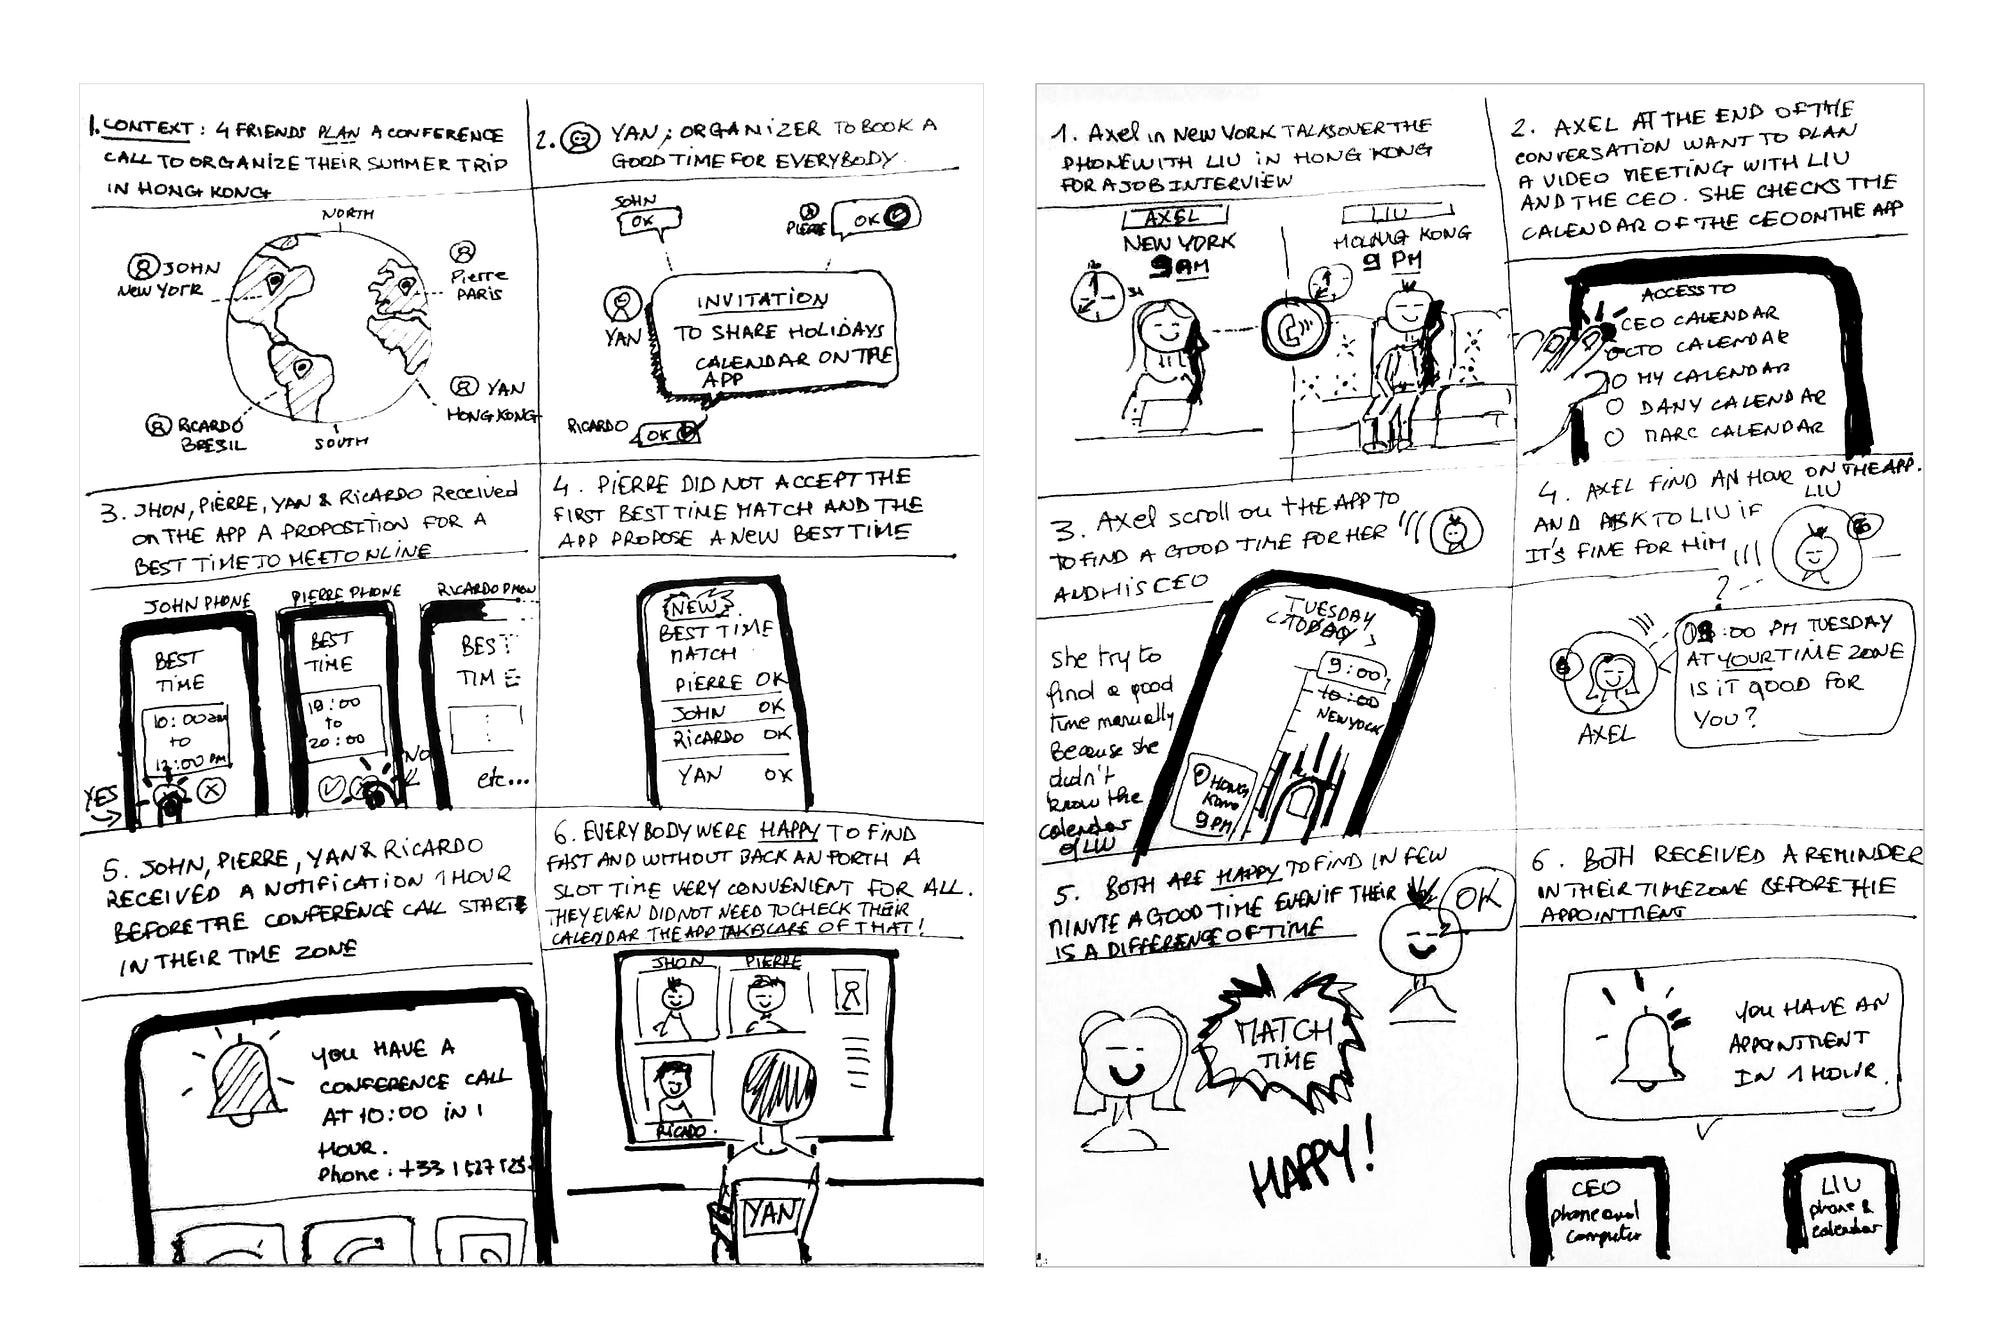 1. CONTEXT : 4 FRIENDS PLAN A CONFERENCE
CALL TO ORGANIZE THEIR SUMMER TRIP
IN HONG KONG
NORTH
JOHN
NEW YORK
Pierre
PARIS
YAN
HONG KONG
RICARDO
BRESIL
SOUTH
2. YAN, ORGANIZER TO BOOK A
GOOD TIME FOR EVERYBODY.
JOHN
OK
PIERRE
OK
YAN
INVITATION
TO SHARE HOLIDAYS
CALENDAR ON THE
APP
RICARDO
OK
3. JHON, PIERRE, YAN & RICARDO Received
ON THE APP A PROPOSITION FOR A
BEST TIME TO MEET ONLINE
JOHN PHONE
PIERRE PHONE
RICARDO PHON
BEST
TIME
10:00 am
to
12:00 PM
YES
BEST
TIME
19:00
to
20:00
NO
BEST
TIME
etc...
4. PIERRE DID NOT ACCEPT THE
FIRST BEST TIME MATCH AND THE
APP PROPOSE A NEW BEST TIME
NEW
BEST TIME
MATCH
PIERRE OK
JOHN OK
RICARDO OK
YAN OK
5. JOHN, PIERRE, YAN & RICARDO
RECEIVED A NOTIFICATION 1 HOUR
BEFORE THE CONFERENCE CALL STARTS
IN THEIR TIME ZONE
YOU HAVE A
CONFERENCE CALL
AT 10:00 IN 1
HOUR.
Phone : +33 1
6. EVERYBODY WERE HAPPY TO FIND
FAST AND WITHOUT BACK AN FORTH A
SLOT TIME VERY CONVENIENT FOR ALL.
THEY EVEN DID NOT NEED TO CHECK THEIR
CALENDAR THE APP TAKES CARE OF THAT!
JHON
PIERRE
RICADO.
YAN
1. Axel in NEW YORK TALKS OVER THE
PHONE WITH LIU IN HONG KONG
FOR A JOB INTERVIEW
AXEL
NEW YORK
9 AM
LIU
HONG KONG
9 PM
2. AXEL AT THE END OF THE
CONVERSATION WANT TO PLAN
A VIDEO MEETING WITH LIU
AND THE CEO. SHE CHECKS THE
CALENDAR OF THE CEO ON THE APP
ACCESS TO
CEO CALENDAR
CTO CALENDAR
MY CALENDAR
DANY CALENDAR
MARC CALENDAR
3. Axel scroll on THE APP TO
TO FIND A GOOD TIME FOR HER
AND HIS CEO
She try to
find a good
time manually
Because she
didn't
know the
calendar
of LIU
TUESDAY
< TODAY >
9:00
10:00
NEW YORK
HONG
KONG
9 PM
4. AXEL FIND AN HOUR ON THE APP.
AND ASK TO LIU IF
IT'S FINE FOR HIM
LIU
?
:00 PM TUESDAY
AT YOUR TIME ZONE
IS IT GOOD FOR
YOU?
AXEL
5. BOTH ARE HAPPY TO FIND IN FEW
MINUTE A GOOD TIME EVEN IF THEIR
IS A DIFFERENCE OF TIME
OK
MATCH
TIME
HAPPY!
6. BOTH RECEIVED A REMINDER
IN THEIR TIMEZONE BEFORE THE
APPOINTMENT
YOU HAVE AN
APPOINTMENT
IN 1 HOUR.
CEO
phone and
computer
LIU
phone &
calendar